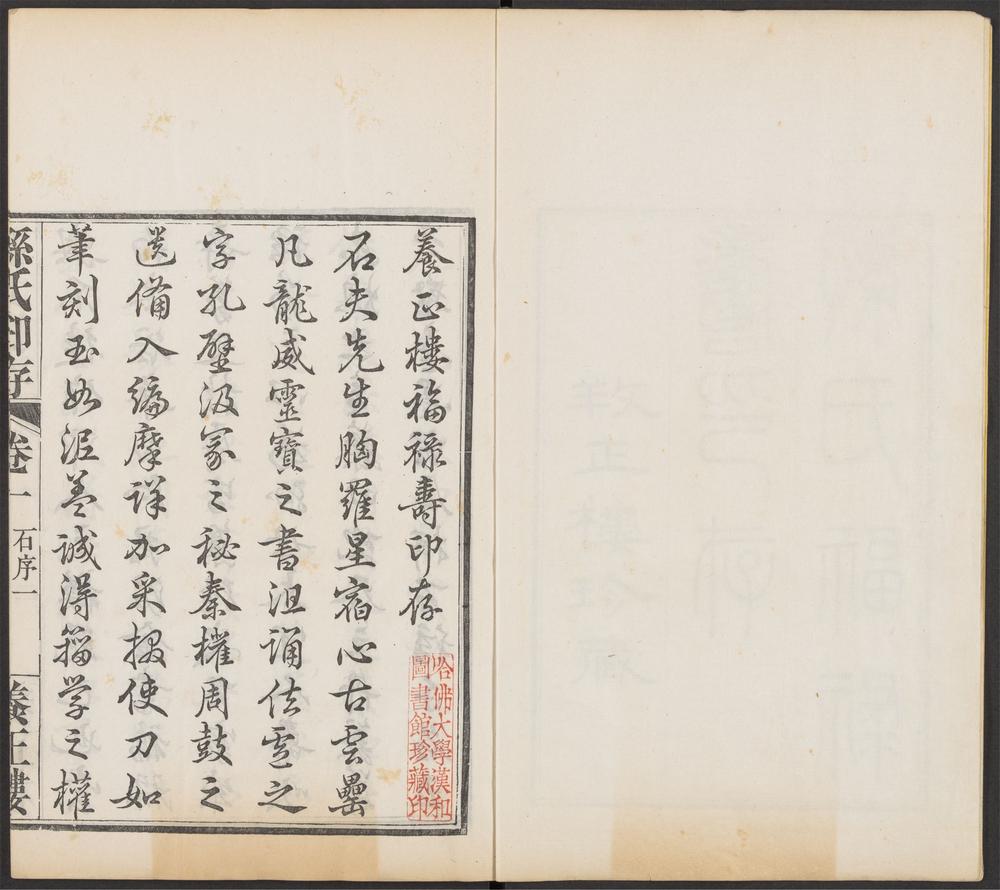 養正樓福祿壽印存
哈佛大學漢和
圖書館珍藏印
石夫先生胸羅星宿心古雲罍
凡龍威靈寶之書沮誦佉盧之
字孔壁汲冢之秘秦權周鼓之
遺備入編摩詳加采掇使刀如
筆刻玉如泥蓋誠得籀學之權
孫氏印存 卷一 石序一 養正樓